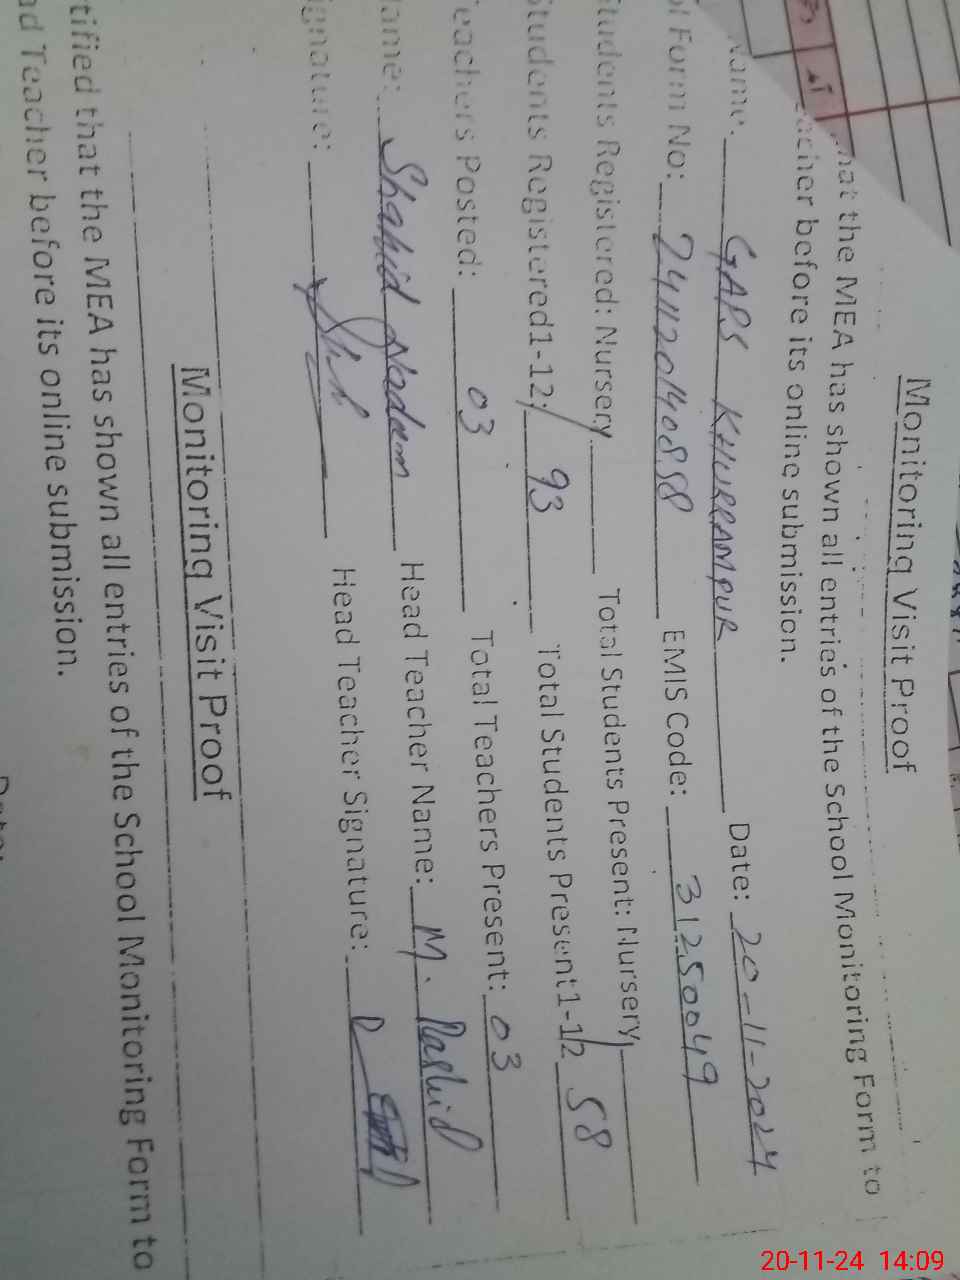 Monitoring Visit Proof
hat the MEA has shown all entries of the School Monitoring Form to
acher before its online submission.
Name: GAPS KHURRAMPUR Date: 20-11-2024
ol Form No: 241120140858 EMIS Code: 31250049
Students Registered: Nursery Total Students Present: Nursery
Students Registered1-12: 93 Total Students Present1-12 58
Teachers Posted: 03 Total Teachers Present: 03
Name: Shahid Nadeem Head Teacher Name: M. Rashid
ignature: Head Teacher Signature:
Monitoring Visit Proof
tified that the MEA has shown all entries of the School Monitoring Form to
ad Teacher before its online submission.
Date:
20-11-24 14:09